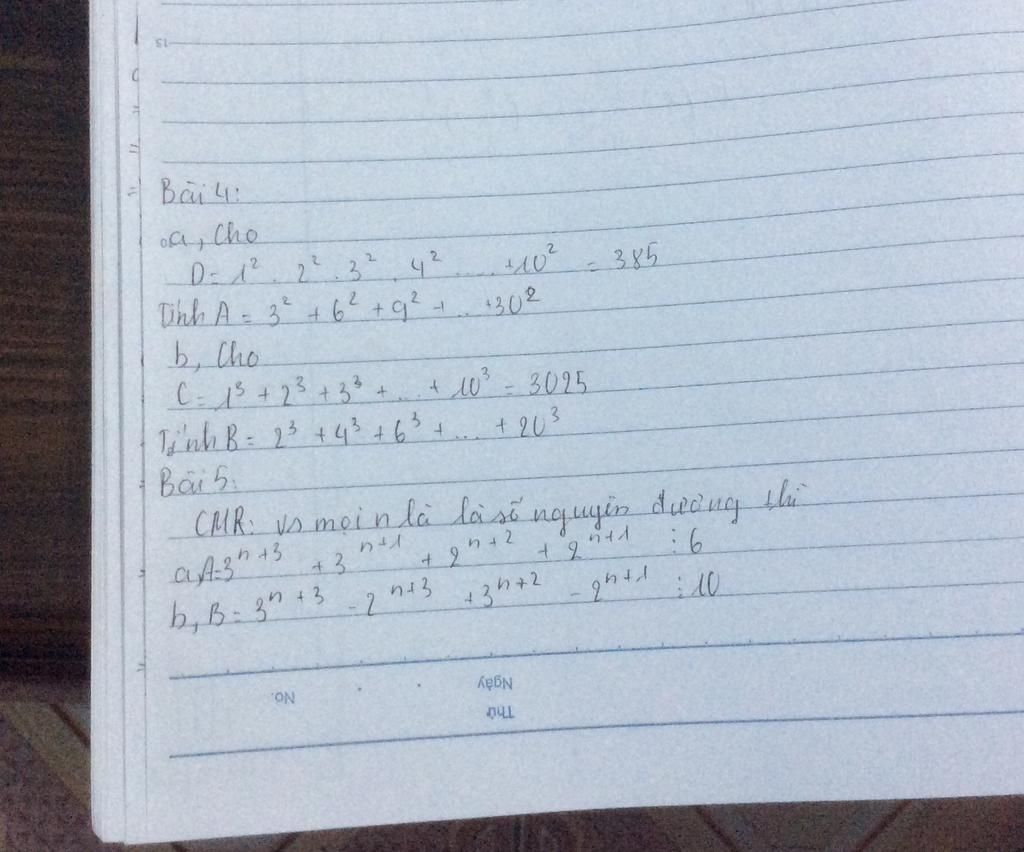 Bài 4:
a, Cho
D = 1² . 2² . 3² . 4² .... +10² = 385
Tính A = 3² + 6² + 9² + ... +30²
b, Cho
C = 1³ + 2³ + 3³ + ... + 10³ = 3025
Tính B = 2³ + 4³ + 6³ + ... + 20³
Bài 5:
CMR: vs mọi n là là số nguyên dương thì
a, A = 3ⁿ⁺³ + 3ⁿ⁺¹ + 2ⁿ⁺² + 2ⁿ⁺¹ ⋮ 6
b, B = 3ⁿ⁺³ - 2ⁿ⁺³ + 3ⁿ⁺² - 2ⁿ⁺¹ ⋮ 10
No.
Ngày
Thứ